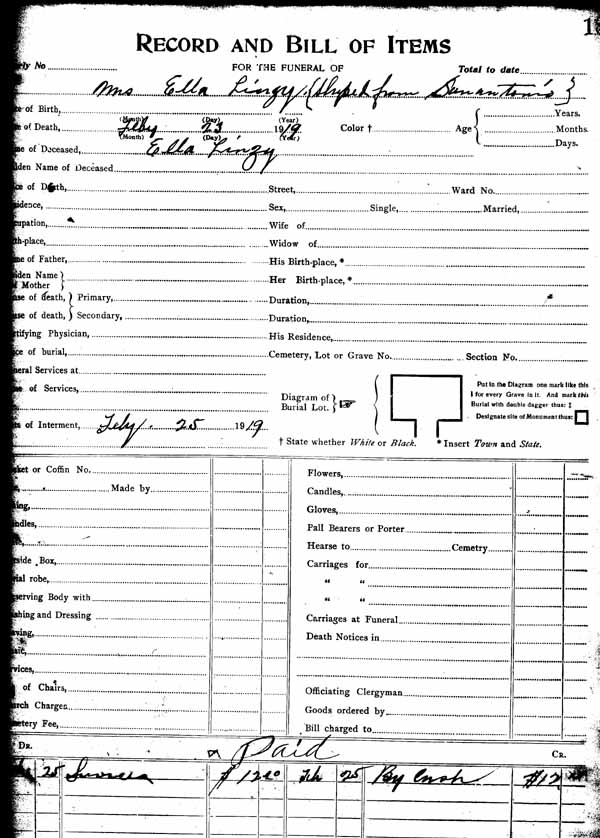 1
RECORD AND BILL OF ITEMS
ly No FOR THE FUNERAL OF Total to date
Mrs Ella Linzy (Shiped from Sanantonio)
e of Birth, (Month) (Day) (Year) Years.
e of Death, Feby 23 1919 Color † Age Months.
(Month) (Day) (Year) Days.
me of Deceased, Ella Linzy
iden Name of Deceased
ce of Death, Street, Ward No.
idence, Sex, Single, Married,
upation, Wife of
th-place, Widow of
me of Father, His Birth-place, *
iden Name
f Mother Her Birth-place, *
se of death, Primary, Duration,
se of death, Secondary, Duration,
tifying Physician, His Residence,
ce of burial, Cemetery, Lot or Grave No. Section No.
neral Services at
e of Services,
Diagram of
Burial Lot. ☞
Put in the Diagram one mark like this
I for every Grave in it. And mark this
Burial with double dagger thus: ‡
Designate site of Monument thus:
s of Interment, Feby. 25 1919
† State whether White or Black. * Insert Town and State.
ket or Coffin No. Flowers,
Made by Candles,
ing, Gloves,
ndles, Pall Bearers or Porter
Hearse to Cemetry
side Box, Carriages for
ial robe, " "
serving Body with " "
shing and Dressing Carriages at Funeral
ving, Death Notices in
vices,
of Chairs, Officiating Clergyman
rch Charges Goods ordered by
etery Fee, Bill charged to
DR. Paid CR.
25 Services $ 12.00 Feb 25 By Cash $12